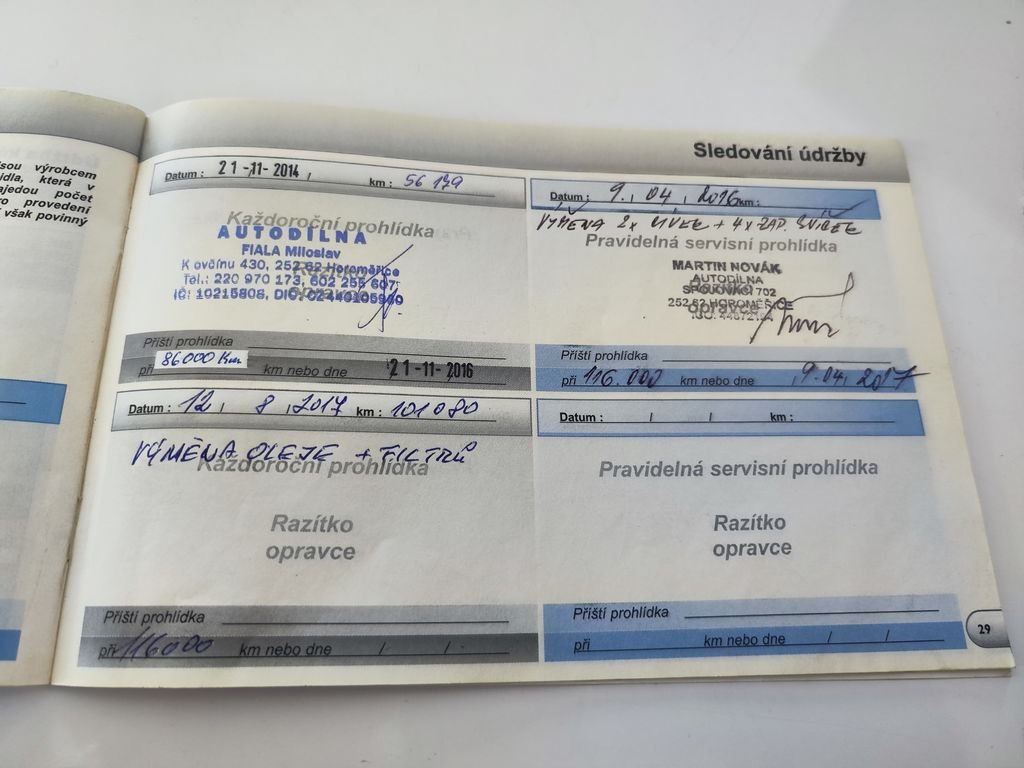 sou výrobcem
idla, která v
ajedou počet
ro provedení
však povinný
Sledování údržby
Datum : 21-11-2014 km : 56 139
Každoroční prohlídka
AUTODÍLNA
FIALA Miloslav
K ovčínu 430, 252 62 Horoměřice
Tel.: 220 970 173, 602 255 607
IČ: 10215808, DIČ: CZ440105960
Razítko
opravce
Příští prohlídka
při 86000 Km km nebo dne 21-11-2016
Datum : 9. 04. 2016 km :
VÝMĚNA 2x + 4x ZAP. SVÍČEK
Pravidelná servisní prohlídka
MARTIN NOVÁK
AUTODÍLNA
702
252 62 HOROMĚŘICE
Razítko
opravce
Příští prohlídka
při 116.000 km nebo dne 9.04.2017
Datum : 12 / 8 / 2017 km : 101080
VÝMĚNA OLEJE + FILTRŮ
Každoroční prohlídka
Razítko
opravce
Příští prohlídka
při 116000 km nebo dne / /
Datum : / / km :
Pravidelná servisní prohlídka
Razítko
opravce
Příští prohlídka
při km nebo dne / /
29